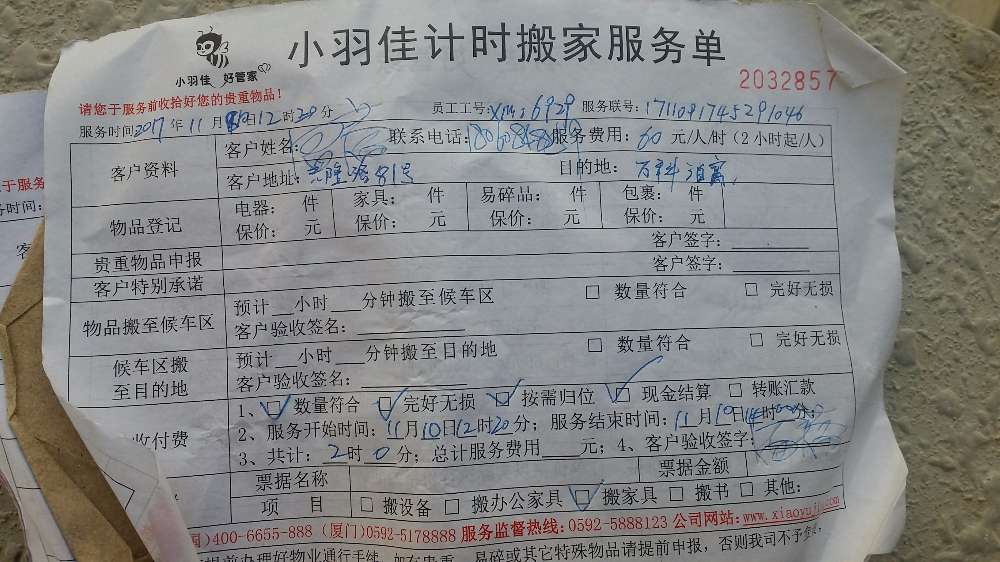 小羽佳计时搬家服务单
小羽佳 好管家
2032857
请您于服务前收拾好您的贵重物品！
服务时间2017年11月 日12时20分 员工工号: 6929 服务联号: 1711091745291046
客户资料 客户姓名: 联系电话: 服务费用: 60 元/人/时(2小时起/人)
客户地址: 81号 目的地: 万科
物品登记 电器: 件 家具: 件 易碎品: 件 包裹: 件
保价: 元 保价: 元 保价: 元 保价: 元
贵重物品申报 客户签字:
客户特别承诺 客户签字:
物品搬至候车区 预计__小时___分钟搬至候车区 □ 数量符合 □ 完好无损
客户验收签名:
候车区搬至目的地 预计__小时___分钟搬至目的地 □ 数量符合 □ 完好无损
客户验收签名:
收付费 1、☑ 数量符合 ☑ 完好无损 ☑ 按需归位 ☑ 现金结算 □ 转账汇款
2、服务开始时间: 11月10日12时20分; 服务结束时间: 11月10日 时 分;
3、共计: 2时0分; 总计服务费用___元; 4、客户验收签字:
票据名称 票据金额
项 目 □ 搬设备 □ 搬办公家具 ☑ 搬家具 □ 搬书 □ 其他:
国)400-6655-888 (厦门)0592-5178888 服务监督热线:0592-5888123 公司网站:www.xiaoyujia
提前办理好物业通行手续,如有贵重、易碎或其它特殊物品请提前申报，否则我司不予